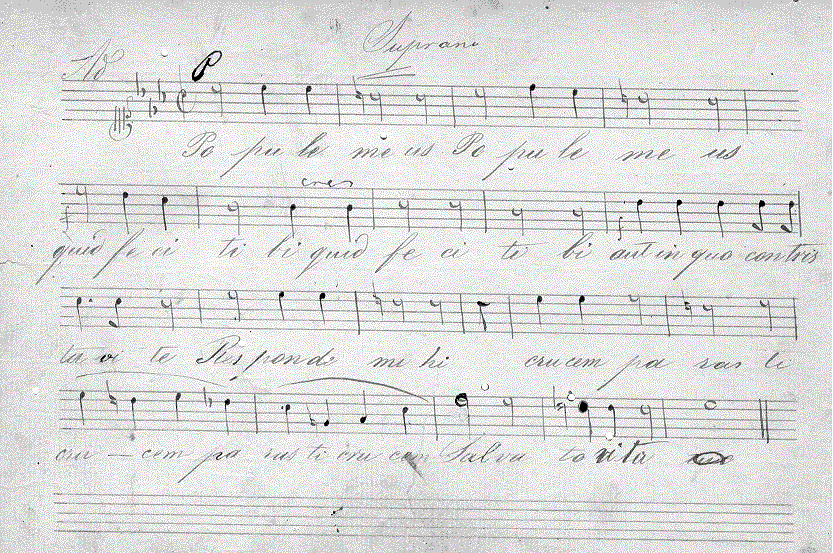 Soprano
Ad P
Po pu le me us Po pu le me us
cres
quid fe ci ti bi quid fe ci ti bi aut in quo con tris
ta vi te Res ponde mi hi crucem pa ras ti
cru - cem pa ras ti cru cem Salva to ri tu